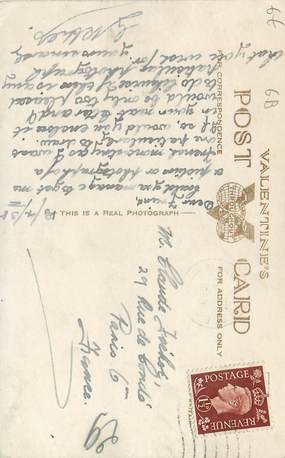 VALENTINE'S
POST CARD
FOR CORRESPONDENCE
FOR ADDRESS ONLY
THIS IS A REAL PHOTOGRAPH
Dear Friend,
Could you manage to get me
a picture or photograph of a
French
particularly to draw.
If so, would you enclose it
in your next letter and I
would be only too pleased
to do likewise if there is any
particular photograph
that you want
yours sincerely
M. Claude
29 Rue de Condé
Paris 6
France.
POSTAGE
1½D
REVENUE
29
6E
6B